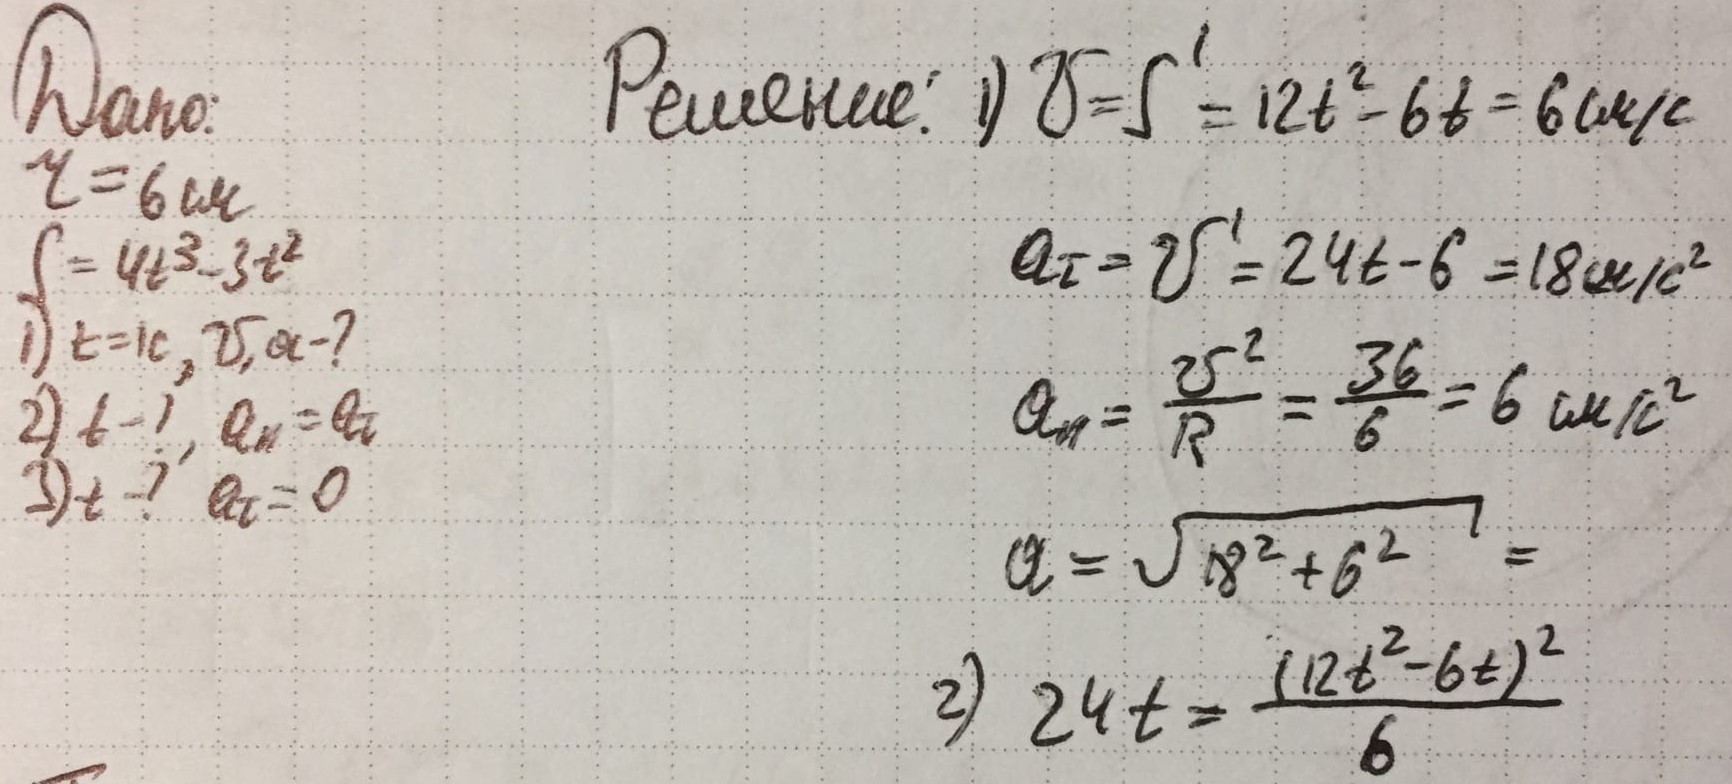 Дано:
r = 6 см
S = 4t³-3t²
1) t=1c, v, a-?
2) t-?, aₙ = a_τ
3) t-? a_τ = 0
Решение: 1) v = S' = 12t² - 6t = 6 см/с
a_τ = v' = 24t - 6 = 18 см/с²
aₙ = v²/R = 36/6 = 6 см/с²
a = √(18² + 6²) =
2) 24t = (12t²-6t)²/6